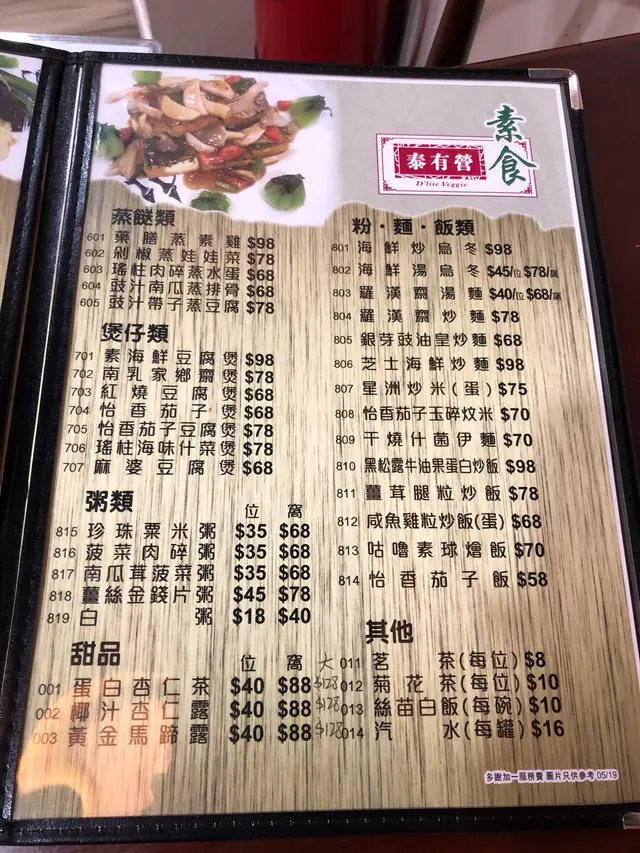 素食
泰有營
D'lite Veggie
蒸餸類
601 藥膳蒸素雞 $98
602 剁椒蒸娃娃菜 $78
603 瑤柱肉碎蒸水蛋 $68
604 豉汁南瓜蒸排骨 $68
605 豉汁帶子蒸豆腐 $78
煲仔類
701 素海鮮豆腐煲 $98
702 南乳家鄉齋煲 $78
703 紅燒豆腐煲 $68
704 怡香茄子煲 $68
705 怡香茄子豆腐煲 $78
706 瑤柱海味什菜煲 $78
707 麻婆豆腐煲 $68
粥類
位 窩
815 珍珠粟米粥 $35 $68
816 菠菜肉碎粥 $35 $68
817 南瓜茸菠菜粥 $35 $68
818 薑絲金錢片粥 $45 $78
819 白粥 $18 $40
甜品
位 窩 大
001 蛋白杏仁茶 $40 $88 $128
002 椰汁杏仁露 $40 $88 $128
003 黃金馬蹄露 $40 $88 $128
粉·麵·飯類
801 海鮮炒烏冬 $98
802 海鮮湯烏冬 $45/位 $78/窩
803 羅漢齋湯麵 $40/位 $68/窩
804 羅漢齋炒麵 $78
805 銀芽豉油皇炒麵 $68
806 芝士海鮮炒麵 $98
807 星洲炒米(蛋) $75
808 怡香茄子玉碎炆米 $70
809 干燒什菌伊麵 $70
810 黑松露牛油果蛋白炒飯 $98
811 薑茸腿粒炒飯 $78
812 咸魚雞粒炒飯(蛋) $68
813 咕嚕素球燴飯 $70
814 怡香茄子飯 $58
其他
011 茗茶(每位) $8
012 菊花茶(每位) $10
013 絲苗白飯(每碗) $10
014 汽水(每罐) $16
多謝加一服務費 圖片只供參考 05/19